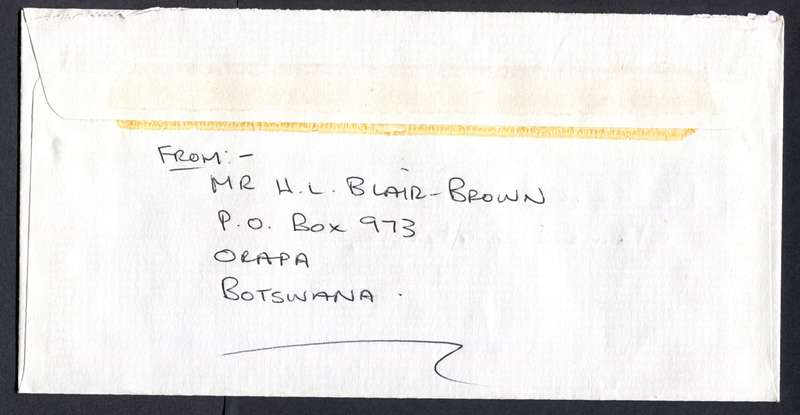 FROM:-
MR H.L. BLAIR-BROWN
P.O. BOX 973
ORAPA
BOTSWANA.